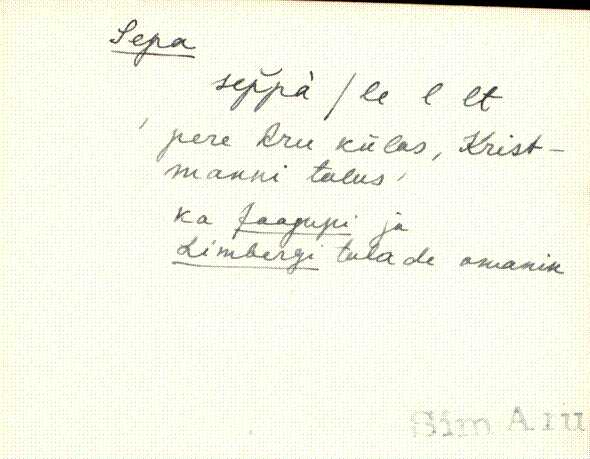 Sepa
sep̆pà / le l lt
' pere Aru külas, Krist-
manni talus '
ka Jaagupi ja
Limbergi talade omanik
Sim Aru